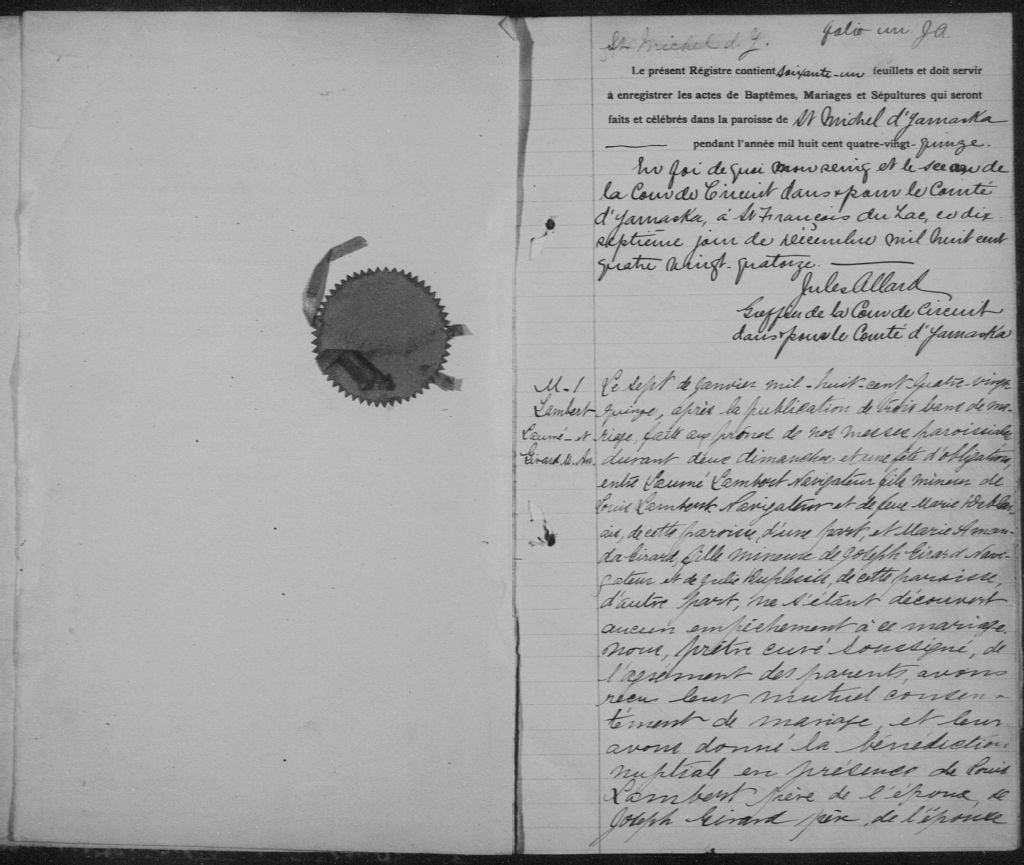 St Michel d'Y. folio un J A
Le présent Régistre contient soixante-un feuillets et doit servir
à enregistrer les actes de Baptêmes, Mariages et Sépultures qui seront
faits et célébrés dans la paroisse de St Michel d'Yamaska
pendant l'année mil huit cent quatre-vingt-quinze.
En foi de quoi mon seing et le sceau de
la Cour de Circuit dans & pour le Comté
d'Yamaska, à St François du Lac, ce dix
septième jour de décembre mil huit cent
quatre vingt-quatorze.
Jules Allard
Greffier de la Cour de Circuit
dans & pour le Comté d'Yamaska
M-1
Lambert
et
Girard M. An.
Le sept de janvier mil-huit-cent quatre-vingt
quinze, après la publication de trois bans de ma-
riage, faite aux prônes de nos messes paroissiales
durant deux dimanches et une fête d'obligation,
entre Lambert Navigateur fils mineur de
Louis Lambert Navigateur et de feue Marie
de cette paroisse, d'une part, et Marie Aman-
da Girard, fille mineure de Joseph Girard Navi-
gateur et de Julie Duplessis, de cette paroisse,
d'autre part, ne s'étant découvert
aucun empêchement à ce mariage
nous, prêtre curé soussigné, de
l'agrément des parents, avons
reçu leur mutuel consen-
tement de mariage, et leur
avons donné la bénédiction
nuptiale en présence de Louis
Lambert père de l'époux, de
Joseph Girard père, de l'épouse